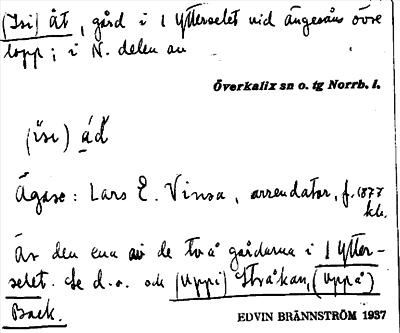 (Isi) åt, gård i 1 Ytterselet vid ängesåns övre
lopp; i N. delen av
Överkalix sn o. tg Norrb. l.
(ïsı) ád̆
Ägare: Lars E. Vinsa, arrendator, f. 1877
Är den ena av de två gårdarna i 1 Ytter-
selet. Se d.o. och (Uppi) Stråkan, (Uppå)
Back.
EDVIN BRÄNNSTRÖM 1937